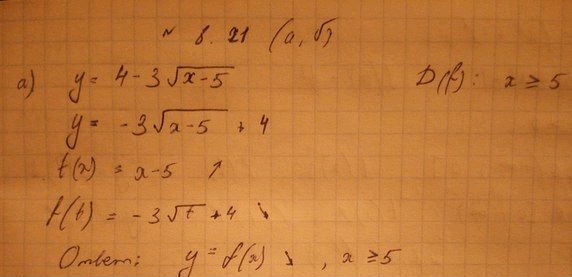 № 8.21 (а, б)
а) y = 4 - 3√(x-5) D(f): x ≥ 5
y = -3√(x-5) + 4
t(x) = x-5 ↗
f(t) = -3√t + 4 ↘
Ответ: y = f(x) ↘, x ≥ 5